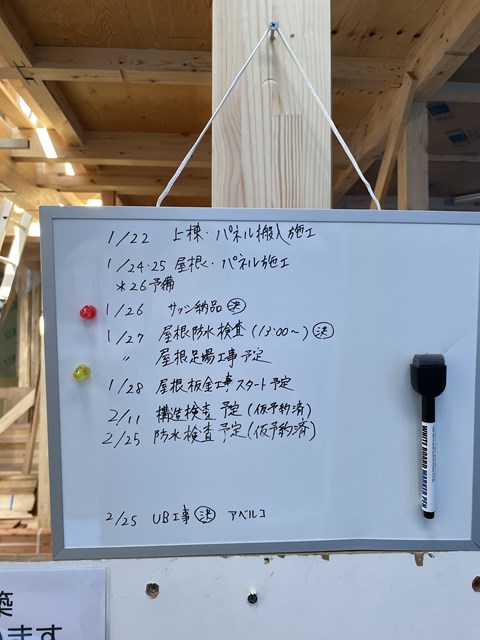 1/22 上棟・パネル搬入施工
1/24・25 屋根く・パネル施工
*26予備
1/26 サッシ納品 決
1/27 屋根防水検査(13:00〜) 決
〃 屋根足場工事予定
1/28 屋根板金工事スタート予定
2/11 構造検査予定(仮予約済)
2/25 防水検査予定(仮予約済)
2/25 UB工事 決 アベルコ
WHITE BOARD MARKER PEN
ます